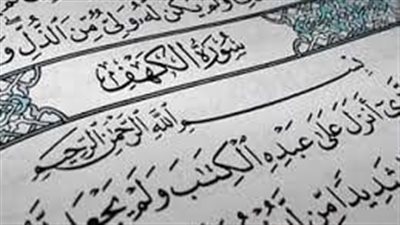 يَكُن لَّهُ وَلِيٌّ مِّنَ الذُّلِّ
سُورَةُ الكَهْفِ
بِسْمِ اللَّهِ الرَّحْمَٰنِ الرَّحِيمِ
أَنزَلَ عَلَىٰ عَبْدِهِ الْكِتَٰبَ وَلَمْ يَجْعَل
شَدِيدًا مِّن